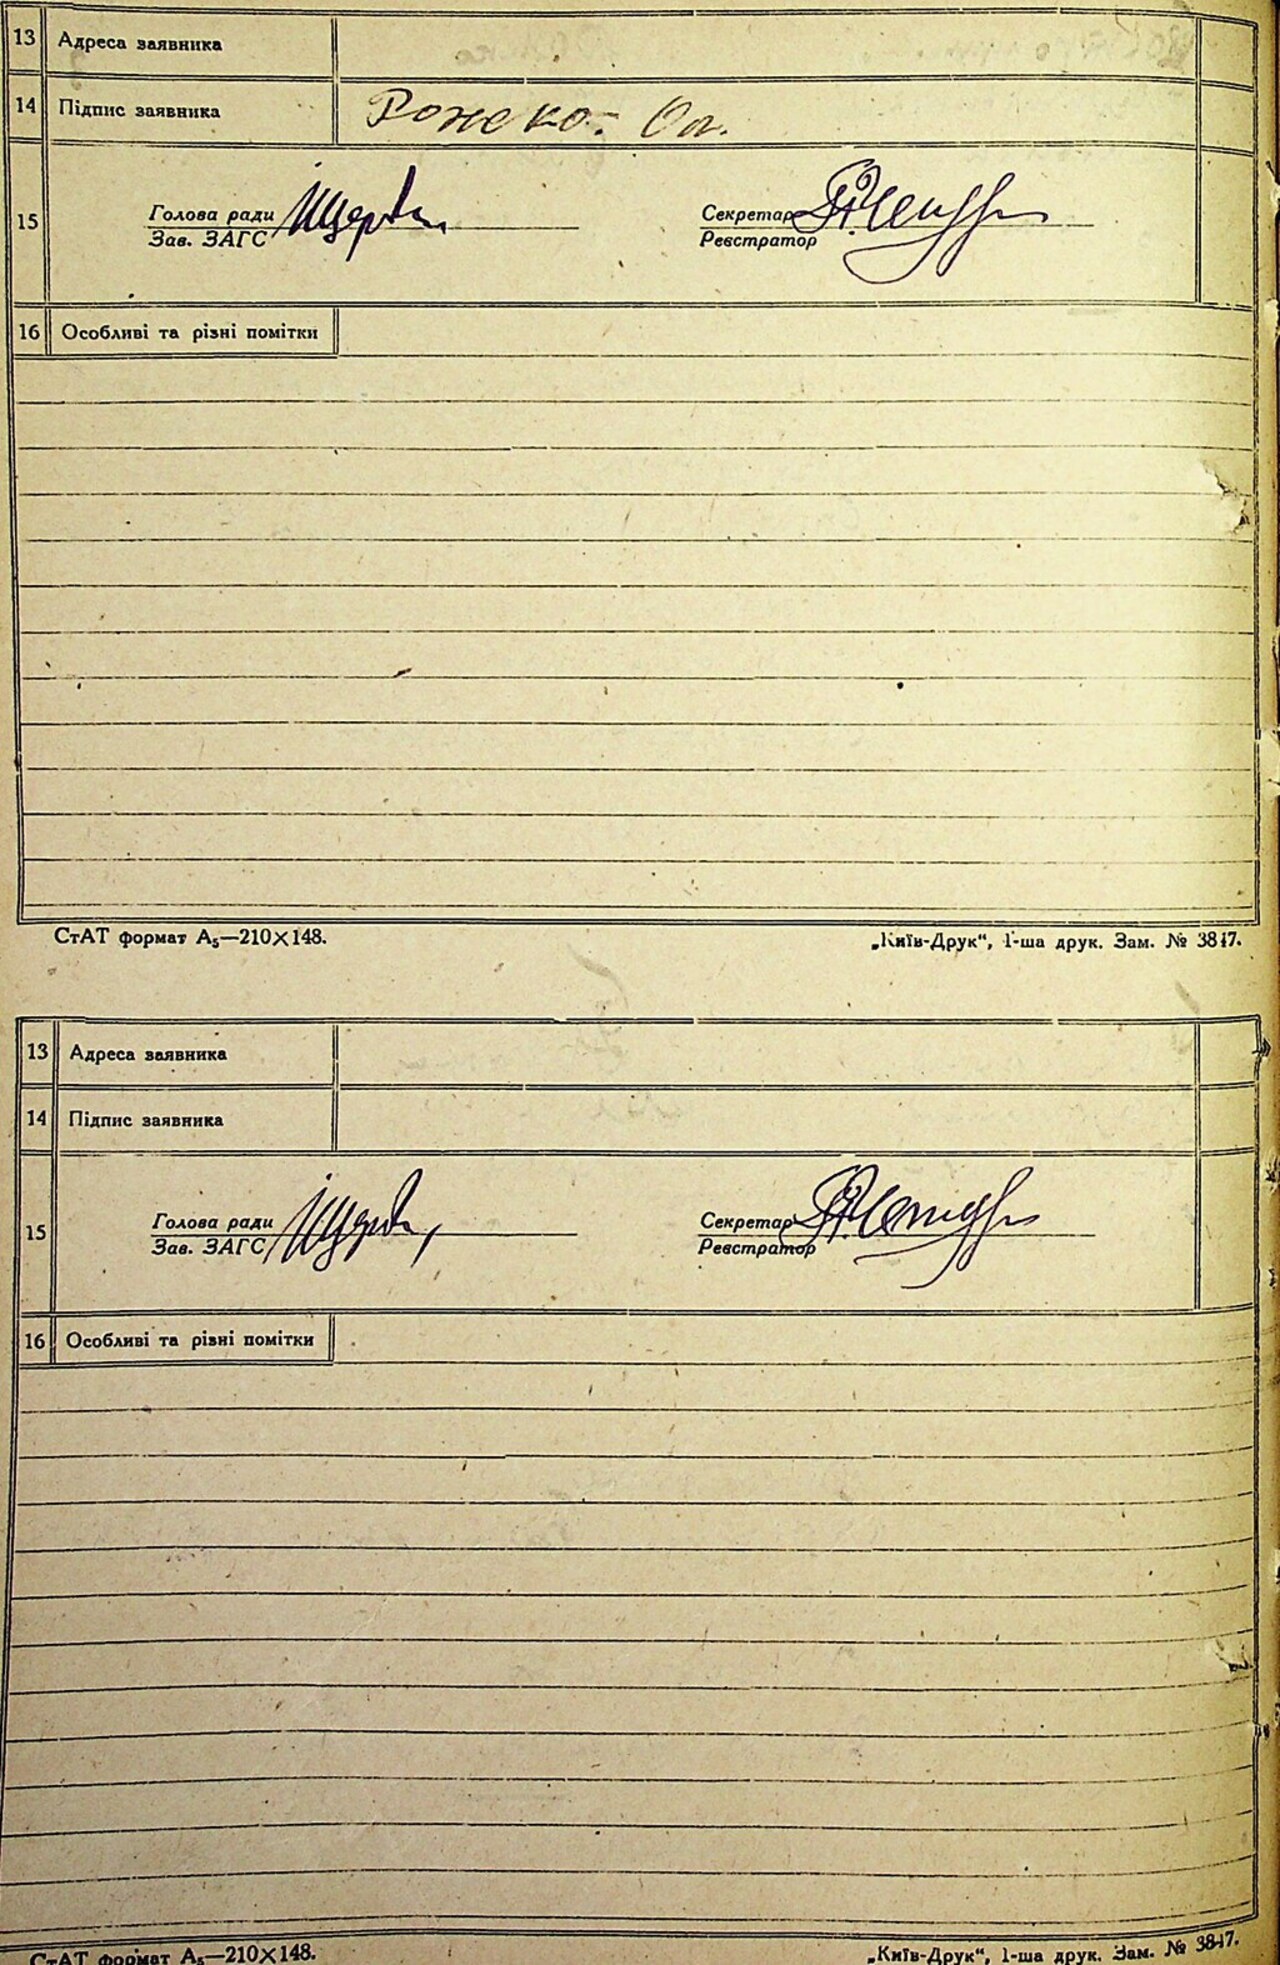 13 Адреса заявника
14 Підпис заявника Рожеко. Ол.
15 Голова ради Секретар
Зав. ЗАГС Реєстратор
16 Особливі та різні помітки
СтАТ формат А₅—210×148. „Київ-Друк“, 1-ша друк. Зам. № 3817.
13 Адреса заявника
14 Підпис заявника
15 Голова ради Секретар
Зав. ЗАГС Реєстратор
16 Особливі та різні помітки
СтАТ формат А₅—210×148. „Київ-Друк“, 1-ша друк. Зам. № 3817.